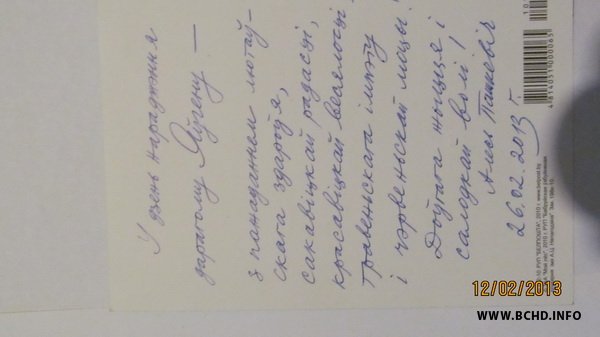 У дзень нараджэння
дарагому Яўгену —
з пажаданнем лютаў-
скага здароўя,
сакавіцкай радасці,
красавіцкай весялосці
Травеньскага імпэту
і чэрвеньскай моцы!
Доўгага жыцця і
салодкай волі!
Алесь
26.02.2013 г.
4 814051 000065
12/02/2013
WWW.BCHD.INFO